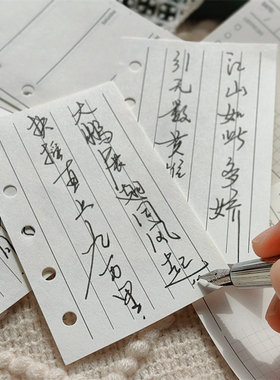 江山如此多娇
引无数英雄
大鹏展翅同风起
扶摇直上九万里